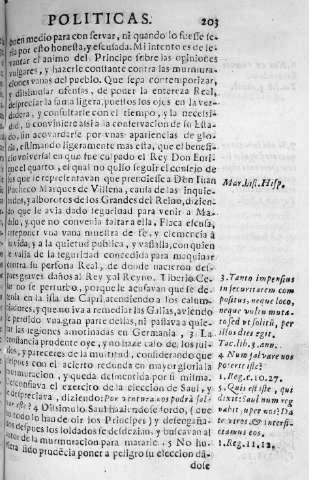 POLITICAS. 203
buen medio para conservar, ni quando lo fuesse se-
ria por esto honesta, y escusada. Mi intento es de le-
vantar el animo del Principe sobre las opiniones
vulgares, y hazerle constante contra las murmura-
ciones vanas del pueblo. Que sepa contemporizar,
y dissimular ofensas, de poner la entereza Real,
despreciar la fama ligera, puestos los ojos en la ver-
dadera, y consultarse con el tiempo, y la necessi-
dad, si conviniere assi a la conservacion de su Esta-
do, sin acovardarse por vnas apariencias de glo-
ria, estimando ligeramente mas esta, que el benefi-
cio vniversal en que fue culpado el Rey Don Enri-
que el quarto, el qual no quiso seguir el consejo de
los que le representavan que prendiesse a Don Iuan
Pacheco Marques de Villena, causa de las inquie-
tudes, y alborotos de los Grandes del Reino, dizien-
do que le avia dado seguridad para venir a Ma-
drid, y que no convenia faltar a ella. Flaca escusa,
anteponer vna vana muestra de fe, y clemencia à
su vida, y a la quietud publica, y vassalla, con quien
se valia de la seguridad concedida para maquinar
contra su persona Real, de donde nacieron des-
pues graves daños al Rey, y al Reyno. Tiberio Ce-
sar no se perturbò, porque le acusavan que se de-
tenia en la isla de Capri, atendiendo a los calum-
niadores, y que no iva a remediar las Galias, aviendo
se perdido vna gran parte dellas, ni passava a quie-
tar las legiones amotinadas en Germania, 3 La
constancia prudente oye, y no haze caso de los jui-
zios, y pareceres de la multitud, considerando que
despues con el acierto redunda en mayor gloria la
murmuracion, y queda desmentida por si misma.
Desconfiava el exercito de la eleccion de Saul, y
le despreciava, diziendo: Por aventura nos podrà sal-
var este? 4 Dissimulò Saul haziendose sordo, (que
no todo lo han de oir los Principes) y desengaña-
dos despues los soldados se desdezian, y buscavan al
autor de la murmuracion para matarle. 5 No hu-
viera sido prudencia poner a peligro su eleccion dã-
dose
Mar. hist. Hisp.
3. Tanto impensius
in securitatem com
positus, neque loco,
neque vultu muta-
to sed vt solitũ, per
illos dies egit.
Tac. lib. 3. ann.
4 Num salvare nos
poterit iste?
1. Reg. c. 10. 27.
5. Quis est iste, qui
dixit: Saul num reg
nabit super nos? Da
te viros, & interfi-
ciemus eos.
1. Reg. 11. 12.